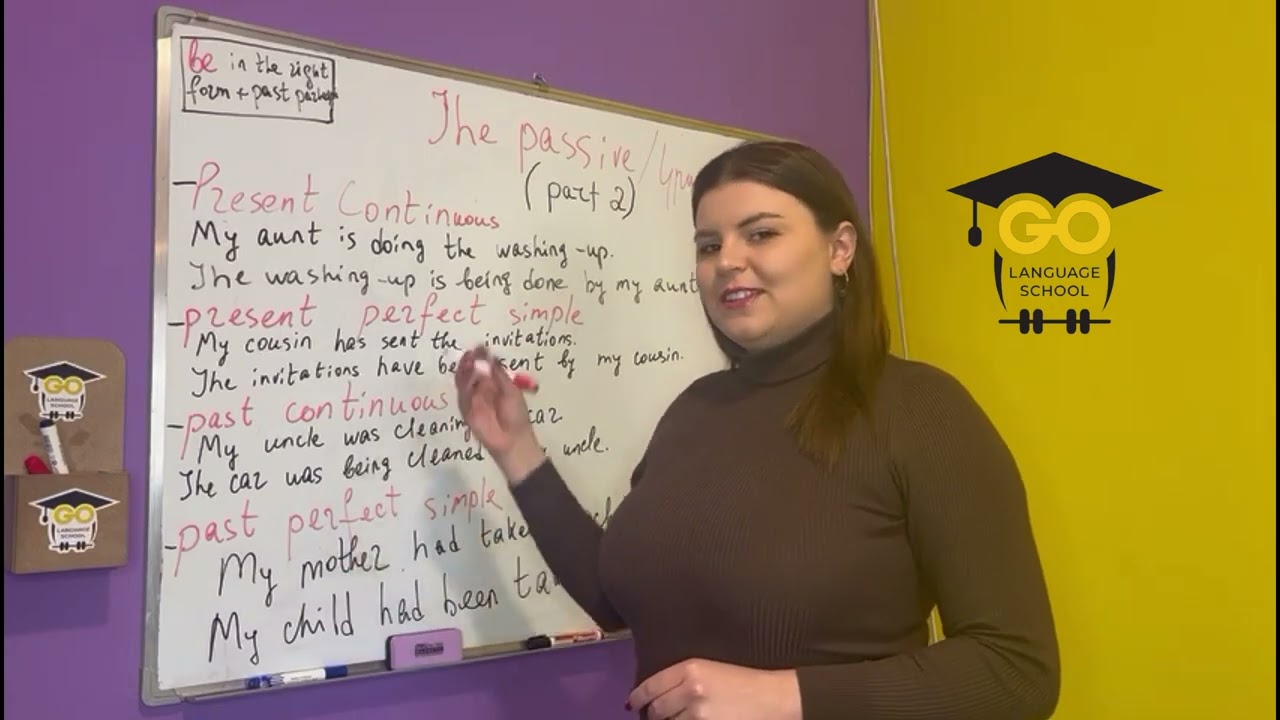 be in the right
form + past
The passive/
(part 2)
- Present Continuous
My aunt is doing the washing-up.
The washing-up is being done by my aunt
- present perfect simple
My cousin has sent the invitations.
The invitations have sent by my cousin.
- past continuous
My uncle was cleaning car
The car was being cleaned uncle.
- past perfect simple
My mother had
My child had been
GO
LANGUAGE
SCHOOL
GO
LANGUAGE
SCHOOL
GO
LANGUAGE
SCHOOL